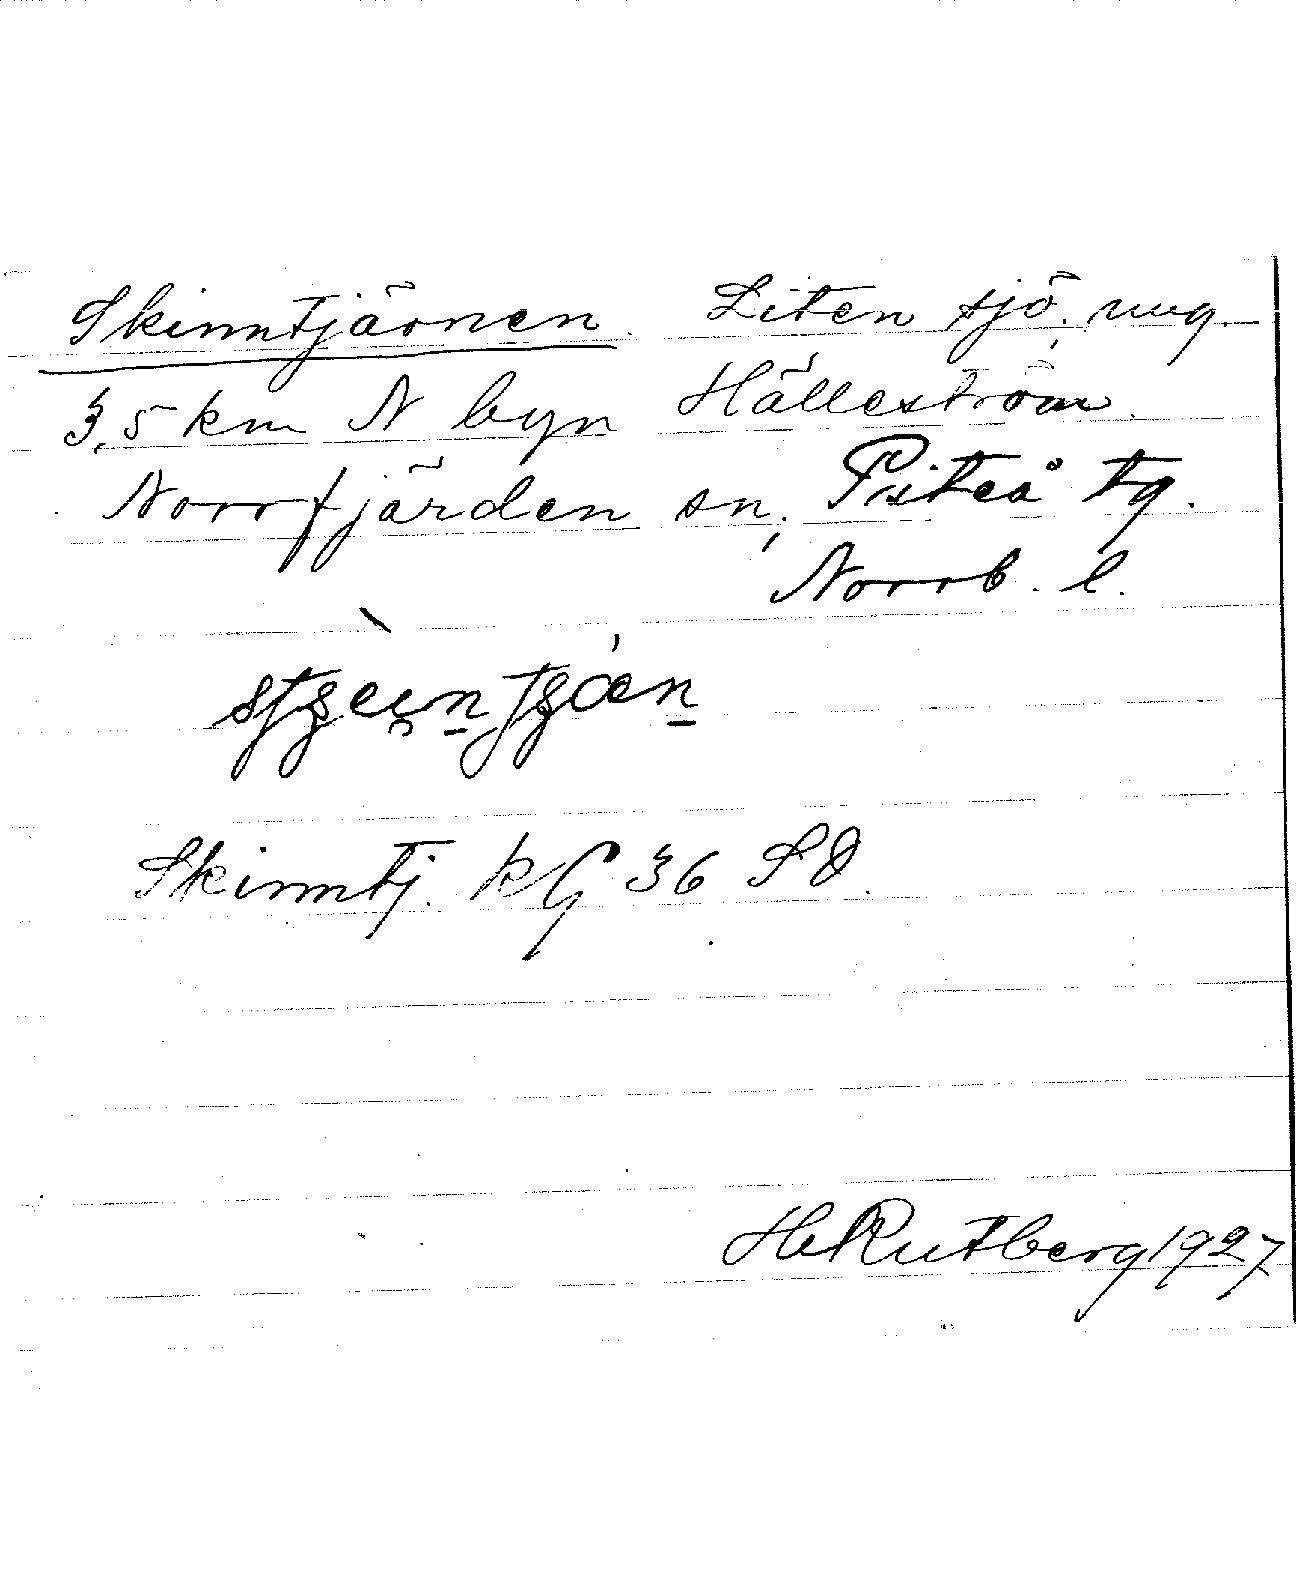 Skinntjärnen. Liten sjö, ung.
3,5 km N byn Hälleström,
Norrfjärden sn, Piteå tg.
Norrb. l.
Skinntj. kG 36 SO.
H Rutberg 1927